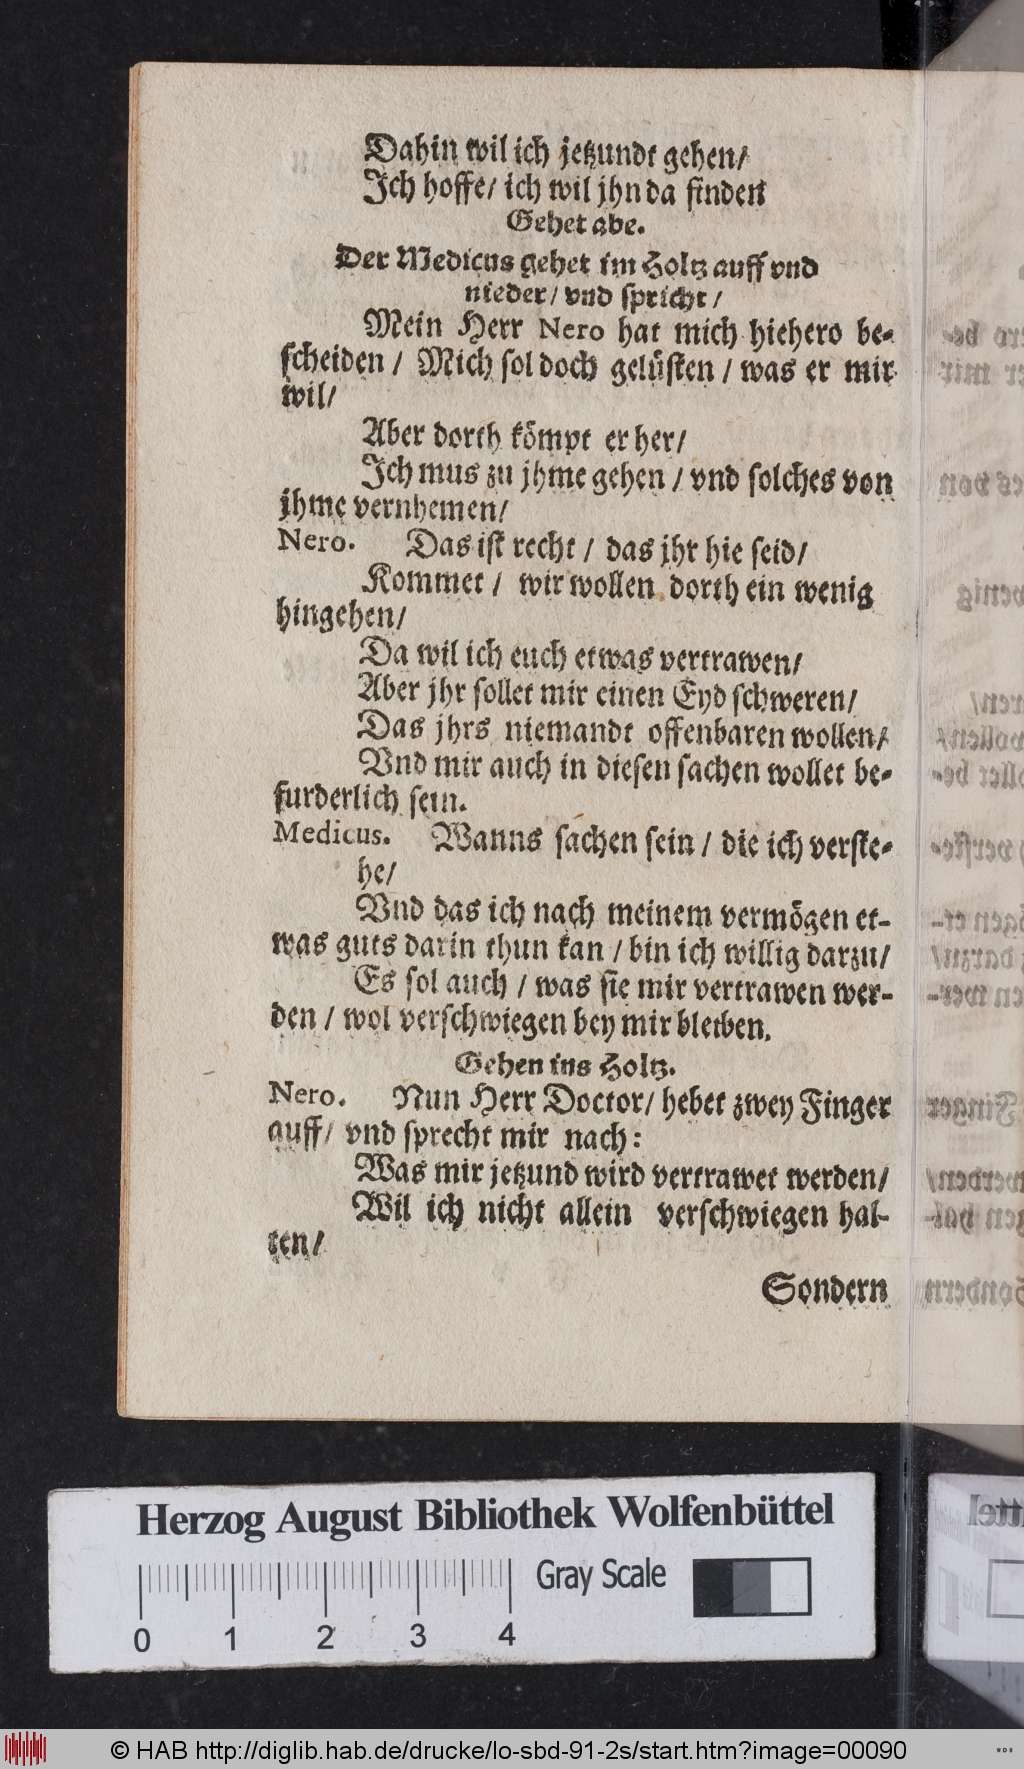 Dahin wil ich jetzundt gehen/
Ich hoffe/ ich wil jhn da finden
Gehet abe.
Der Medicus gehet im Holtz auff vnd
nieder/ vnd spricht/
Mein Herr Nero hat mich hiehero be-
scheiden / Mich sol doch gelüsten / was er mir
wil/
Aber dorth kömpt er her/
Ich mus zu jhme gehen / vnd solches von
jhme vernhemen/
Nero. Das ist recht / das jhr hie seid/
Kommet / wir wollen dorth ein wenig
hingehen/
Da wil ich euch etwas vertrawen/
Aber jhr sollet mir einen Eyd schweren/
Das jhrs niemandt offenbaren wollen/
Vnd mir auch in diesen sachen wollet be-
furderlich sein.
Medicus. Wanns sachen sein / die ich verste-
he/
Vnd das ich nach meinem vermögen et-
was guts darin thun kan / bin ich willig darzu/
Es sol auch / was sie mir vertrawen wer-
den / wol verschwiegen bey mir bleiben.
Gehen ins Holtz.
Nero. Nun Herr Doctor/ hebet zwey Finger
auff/ vnd sprecht mir nach:
Was mir jetzund wird vertrawet werden/
Wil ich nicht allein verschwiegen hal-
ten/
Sondern
Herzog August Bibliothek Wolfenbüttel
Gray Scale
0 1 2 3 4
© HAB http://diglib.hab.de/drucke/lo-sbd-91-2s/start.htm?image=00090